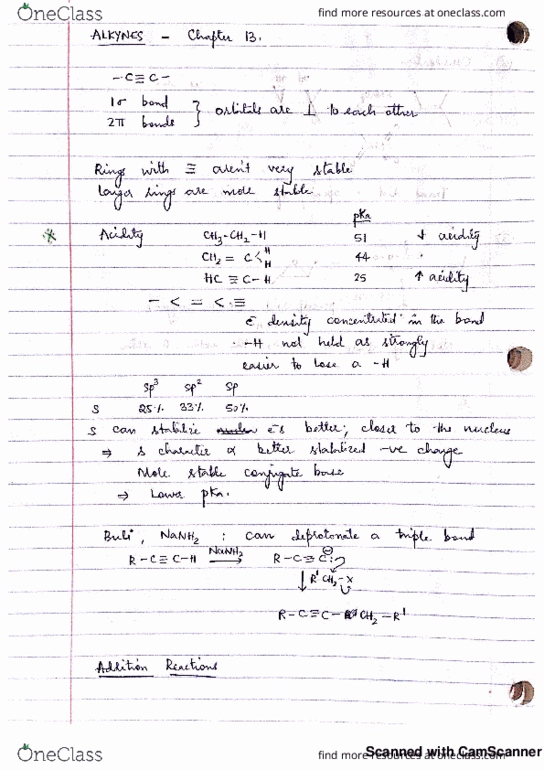 OneClass
find more resources at oneclass.com
ALKYNES - Chapter 13.
-C≡C-
1σ bond
2π bonds } orbitals are ⊥ to each other
Rings with ≡ aren't very stable
larger rings are more stable.
pKa
* Acidity CH3-CH2-H 51 ↓ acidity
CH2 = C<H H 44 "
HC ≡ C-H 25 ↑ acidity
- < = < ≡
e density concentrated in the bond
-H not held as strongly
easier to lose a -H
sp3 sp2 sp
S 25% 33% 50%
s can stabilize e-s better; closer to the nucleus
⇒ s character α better stabilized -ve charge
More stable conjugate base
⇒ Lower pKa.
BuLi, NaNH2 : can deprotonate a triple bond
R-C≡C-H NaNH2 → R-C≡C:⊖
↓ R'CH2-X
R-C≡C-CH2-R'
Addition Reactions
OneClass
find more resources at oneclass.com
Scanned with CamScanner